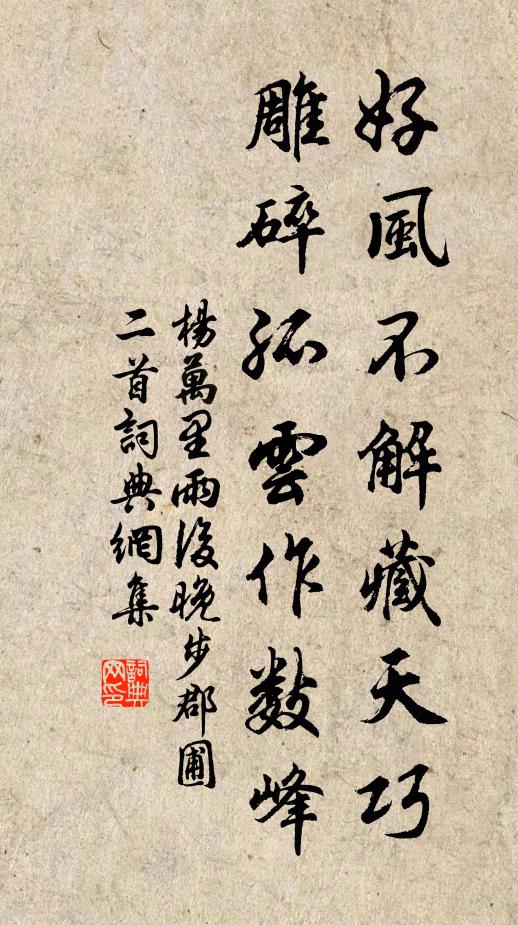 好風不解藏天巧
雕碎孤雲作數峰
楊萬里雨後晚步郡圃
二首詞典網集
詞典網印